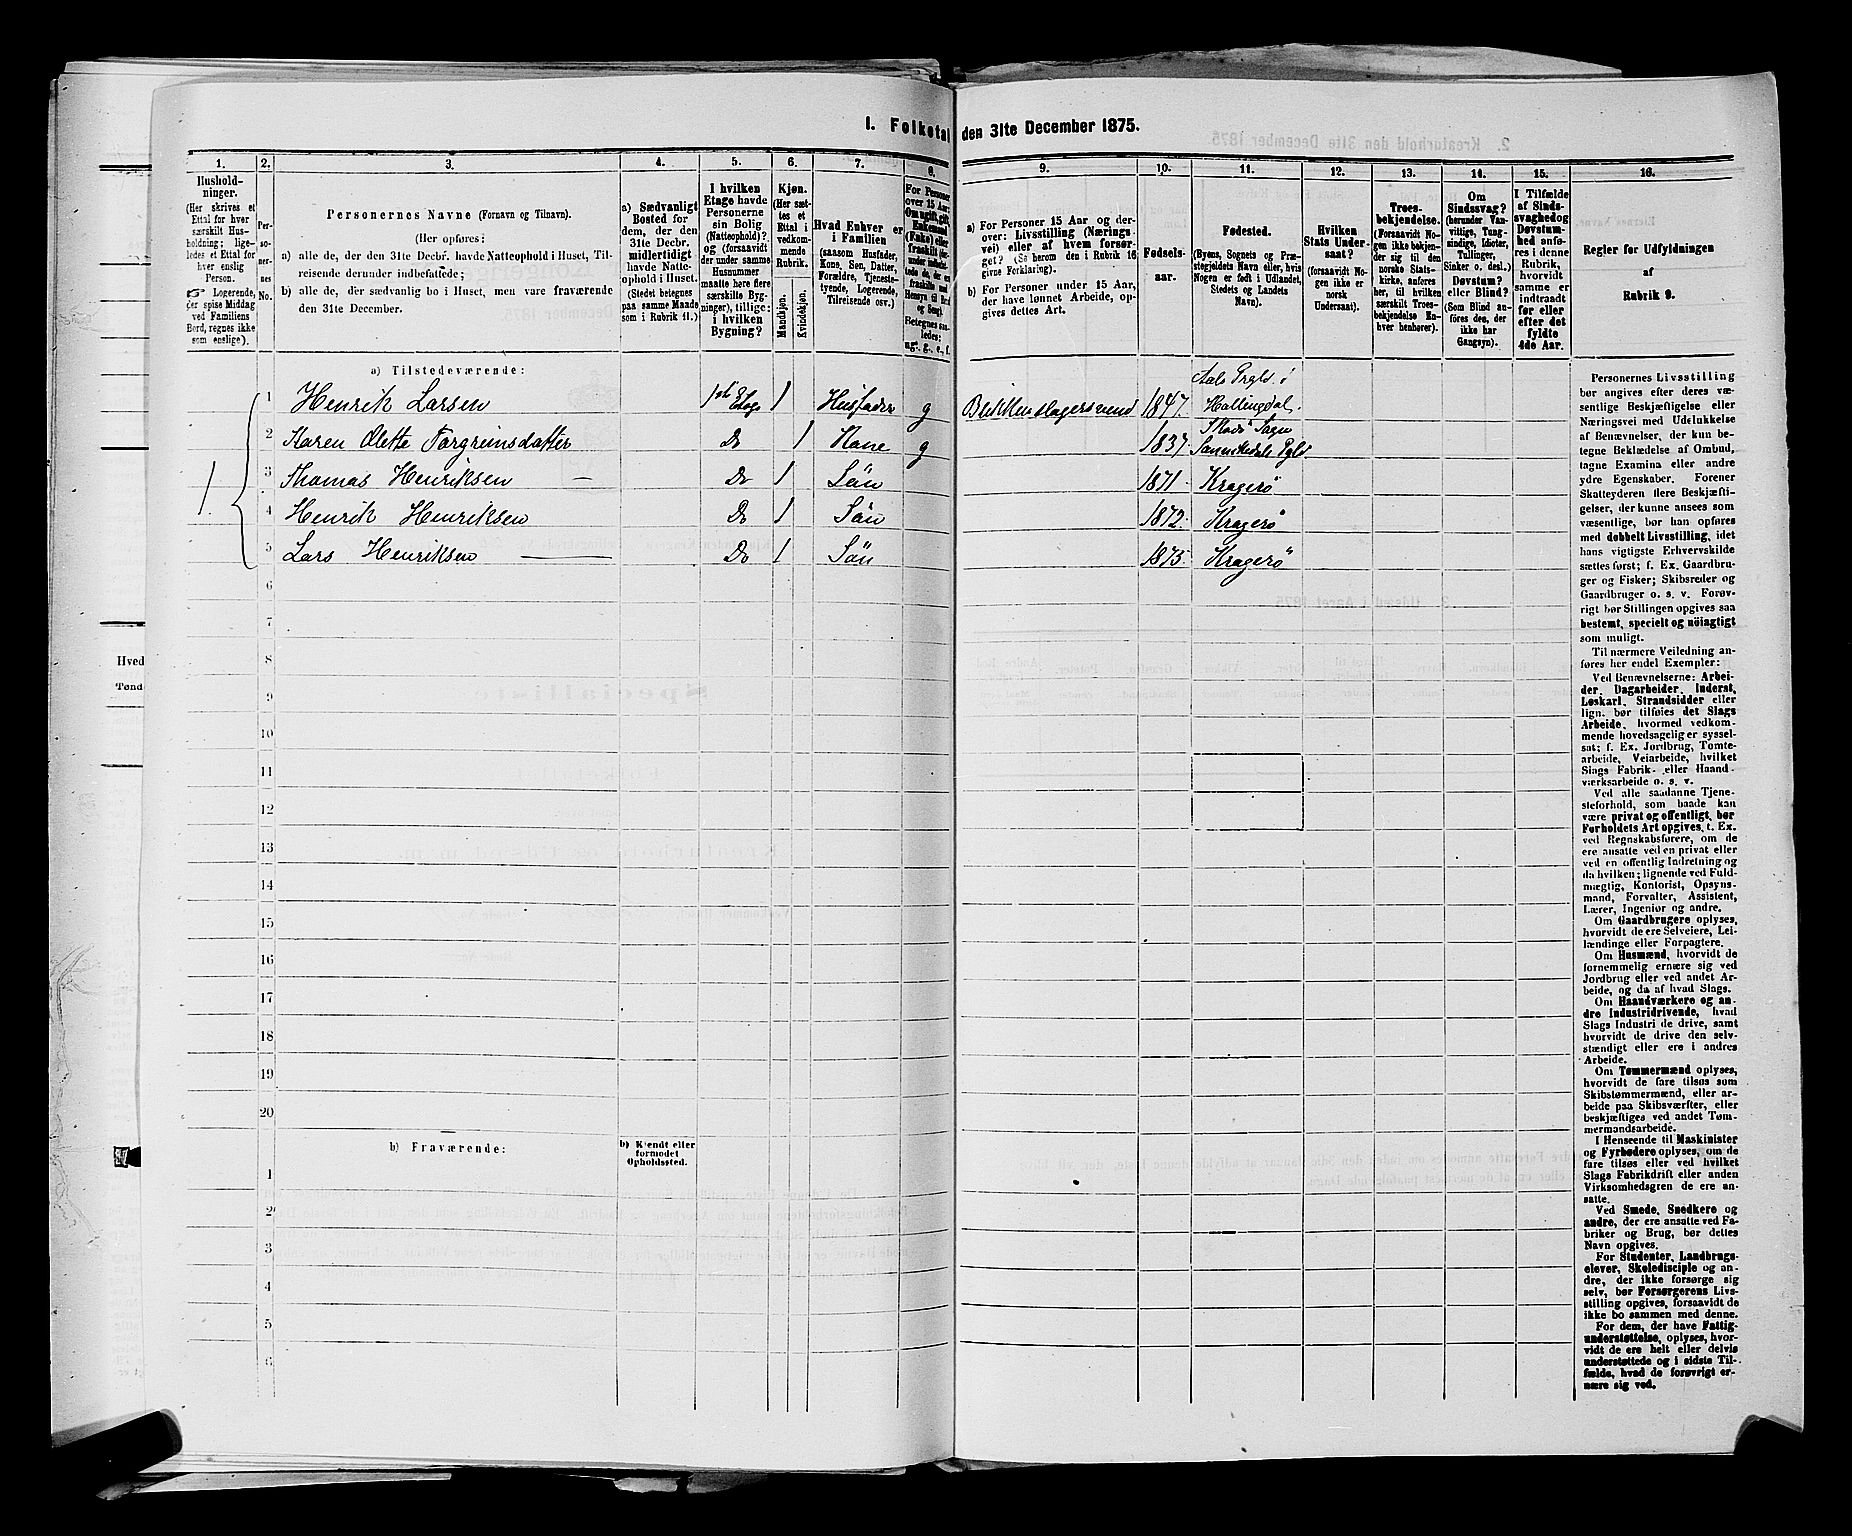 I. Folketal den 31te December 1875.
1. 2. 3. 4. 5. 6. 7. 8. 9. 10. 11. 12. 13. 14. 15. 16.
Hushold-
ninger.
(Her skrives et
Ettal for hver
særskilt Hus-
holdning; lige-
ledes et Ettal for
hver enslig
Person.
Logerende,
der spise Middag
ved Familiens
Bord, regnes ikke
som enslige).
Per-
so-
ner-
nes
No.
Personernes Navne (Fornavn og Tilnavn).
(Her opføres:
a) alle de, der den 31te Decbr. havde Natteophold i Huset, Til-
reisende derunder indbefattede;
b) alle de, der sædvanlig bo i Huset, men vare fraværende
den 31te December.
a) Sædvanligt
Bosted for
dem, der den
31te Decbr.
midlertidigt
havde Natte-
ophold i Huset.
(Stedet betegnes
paa samme Maade
som i Rubrik 11.)
I hvilken
Etage havde
Personerne
sin Bolig
(Natteophold)?
og (forsaavidt
der under samme
Husnummer
maatte høre flere
særskilte Byg-
ninger), tillige:
i hvilken
Bygning?
Kjøn.
(Her sæt-
tes et
Ettal i
vedkom-
mende
Rubrik.
Mandkjøn.
Kvindekjøn.
Hvad Enhver er
i Familien
(saasom Husfader,
Kone, Søn, Datter,
Forældre, Tjeneste-
tyende, Logerende,
Tilreisende osv.)
For Personer
over 15 Aar:
Om ugift, gift,
Enkemand
(Enke) eller
fraskilt
Betegnes saa-
ledes:
ug., g., e., f.
a) For Personer 15 Aar og der-
over: Livsstilling (Nærings-
vei) eller af hvem forsør-
get? (Se herom den i Rubrik 16
givne Forklaring).
b) For Personer under 15 Aar,
der have lønnet Arbeide, op-
gives dettes Art.
Fødsels-
aar.
Fødested.
(Byens, Sognets og Præ-
stegjeldets Navn eller, hvis
Nogen er født i Udlandet,
Stedets og Landets
Navn).
Hvilken
Stats Under-
saat?
(forsaavidt No-
gen ikke er
norsk
Undersaat).
Troes-
bekjendelse.
(Forsaavidt No-
gen ikke bekjen-
der sig til den
norske Stats-
kirke, anføres
her, til hvilken
særskilt Troes-
bekjendelse En-
hver henhører).
Om
Sindssvag?
(herunder Van-
vittige, Tung-
sindige, Idioter,
Tullinger,
Sinker o. desl.)
Døvstum?
eller Blind?
(Som Blind an-
føres den, der
ikke har
Gangsyn).
I Tilfælde
af Sinds-
svaghed og
Døvstum-
hed anfø-
res i denne
Rubrik,
hvorvidt
samme er
indtraadt
før eller
efter det
fyldte
4de Aar.
Regler for Udfyldningen
af
Rubrik 9.
a) Tilstedeværende:
1 Henrik Larsen 1ste Etage 1 Husfader g Blikkenslagersvend 1847. Aals Prgld. i Hallingdal.
2 Karen Olette Torgrimsdatter Do 1 Kone g 1837. Skads Sogn Sannikedals Pgld
3 Thomas Henriksen — Do 1 Søn 1871. Kragerø
4 Henrik Henriksen Do 1 Søn 1872. Kragerø
5 Lars Henriksen — Do 1 Søn 1875. Kragerø
1.
6
7
8
9
10
11
12
13
14
15
16
17
18
19
20
b) Fraværende:
b) Kjendt eller
formodet
Opholdssted.
1
2
3
4
5
6
Personernes Livsstilling
bør angives efter deres væ-
sentlige Beskjæftigelse eller
Næringsvei med Udelukkelse
af Benævnelser, der kun be-
tegne Beklædelse af Ombud,
tagne Examina eller andre
ydre Egenskaber. Forener
Skatteyderen flere Beskjæfti-
gelser, der kunne ansees som
væsentlige, bør han opføres
med dobbelt Livsstilling, idet
hans vigtigste Erhvervskilde
sættes først; f. Ex. Gaardbru-
ger og Fisker; Skibsreder og
Gaardbruger o. s. v. Forøv-
rigt bør Stillingen opgives saa
bestemt, specielt og nöiagtigt
som muligt.
Til nærmere Veiledning an-
føres her endel Exempler:
Ved Benævnelserne: Arbei-
der, Dagarbeider, Inderst,
Løskarl, Strandsidder eller
lign. bør tilføies det Slags
Arbeide, hvormed vedkom-
mende hovedsagelig er syssel-
sat; f. Ex. Jordbrug, Tomte-
arbeide, Veiarbeide, hvilket
Slags Fabrik- eller Haand-
værksarbeide o. s. v.
Ved alle saadanne Tjene-
steforhold, som baade kan
være privat og offentligt, bør
Forholdets Art opgives, t. Ex.
ved Regnskabsførere, om de
ere ansatte ved en privat eller
ved en offentlig Indretning og
da hvilken; lignende ved Fuld-
mægtig, Kontorist, Opsyns-
mand, Forvalter, Assistent,
Lærer, Ingeniør og andre.
Om Gaardbrugere oplyses,
hvorvidt de ere Selveiere, Lei-
lændinge eller Forpagtere.
Om Husmænd, hvorvidt de
fornemmelig ernære sig ved
Jordbrug eller ved andet Ar-
beide, og da af hvad Slags.
Om Haandværkere og an-
dre Industridrivende, hvad
Slags Industri de drive, samt
hvorvidt de drive den selv-
stændigt eller ere i andres
Arbeide.
Om Tømmermænd oplyses,
hvorvidt de fare tilsøs som
Skibstømmermænd, eller ar-
beide paa Skibsværfter, eller
beskjæftiges ved andet Tøm-
mermandsarbeide.
I Henseende til Maskinister
og Fyrbødere oplyses, om de
fare tilsøs eller ved hvilket
Slags Fabrikdrift eller anden
Virksomhedsgren de ere an-
satte.
Ved Smede, Snedkere og
andre, der ere ansatte ved Fa-
briker og Brug, bør dettes
Navn opgives.
For Studenter, Landbrugs-
elever, Skoledisciple og an-
dre, der ikke forsørge sig
selv, bør Forsørgerens Livs-
stilling opgives, forsaavidt de
ikke bo sammen med denne.
For dem, der have Fattig-
understøttelse, oplyses, hvor-
vidt de ere helt eller delvis
understøttede og i sidste Til-
fælde, hvad de forøvrigt er-
nære sig ved.
Hved
Tønd